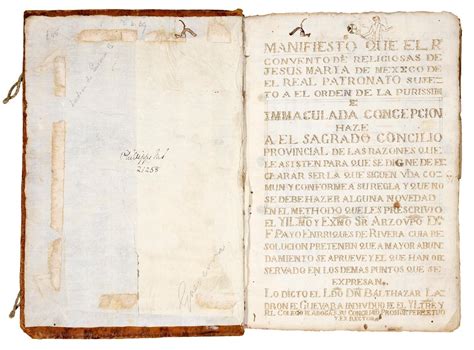 Phillipps MS
21258
MANIFIESTO QUE EL R
CONVENTO DE RELIGIOSAS DE
JESUS MARIA DE MEXICO DE
EL REAL PATRONATO SUJE
TO A EL ORDEN DE LA PURISSIM
E
IMMACULADA CONCEPCION
HAZE
A EL SAGRADO CONCILIO
PROVINCIAL DE LAS RAZONES QUE
LE ASISTEN PARA QUE SE DIGNE DE
CLARAR SER LA QUE SIGUEN VIDA CO
MUN Y CONFORME A SU REGLA Y QUE NO
SE DEBE HAZER ALGUNA NOVEDAD
EN EL METHODO QUE LES PRESCRIVIO
EL YLLMO Y EXMO SR ARZOVPO Dn
Fr PAYO ENRRIQUES DE RIVERA CUIA RE
SOLUCION PRETENDEN QUE A MAYOR ABUN
DAMIENTO SE APRUEVE Y EL QUE HAN OB
SERVADO EN LOS DEMAS PUNTOS QUE SE
EXPRESAN
LO DICTO EL LDO Dn BALTHAZAR LA
DRON DE GUEVARA INDIVIDUO DE EL YLTRE Y
RL COLEGIO D ABOGADOS SU CONCILIO PROSINTERPRETUO
Y EX RECTOR